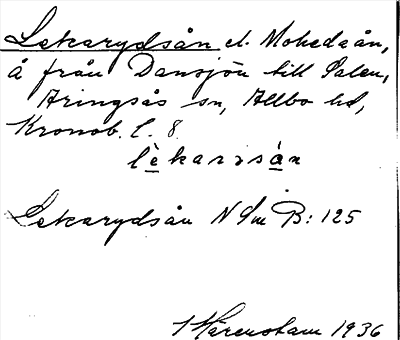 Lekarydsån el. Mohedaån,
å från Dansjön till Salen,
Aringsås sn, Allbo hd,
Kronob. l. 8.
lèkarɿsàn
Lekarydsån N Sm B: 125
Härenstam 1936